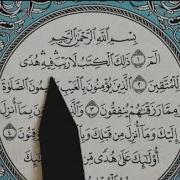 بِسْمِ اللَّهِ الرَّحْمَٰنِ الرَّحِيمِ
الٓمٓ ١ ذَٰلِكَ الْكِتَٰبُ لَا رَيْبَ فِيهِ هُدًى
لِّلْمُتَّقِينَ ٢ الَّذِينَ يُؤْمِنُونَ بِالْغَيْبِ وَيُقِيمُونَ الصَّلَوٰةَ
وَمِمَّا رَزَقْنَٰهُمْ يُنفِقُونَ ٣ وَالَّذِينَ يُؤْمِنُونَ بِمَا أُنزِلَ
إِلَيْكَ وَمَا أُنزِلَ مِن قَبْلِكَ
أُولَٰئِكَ عَلَىٰ هُدًى